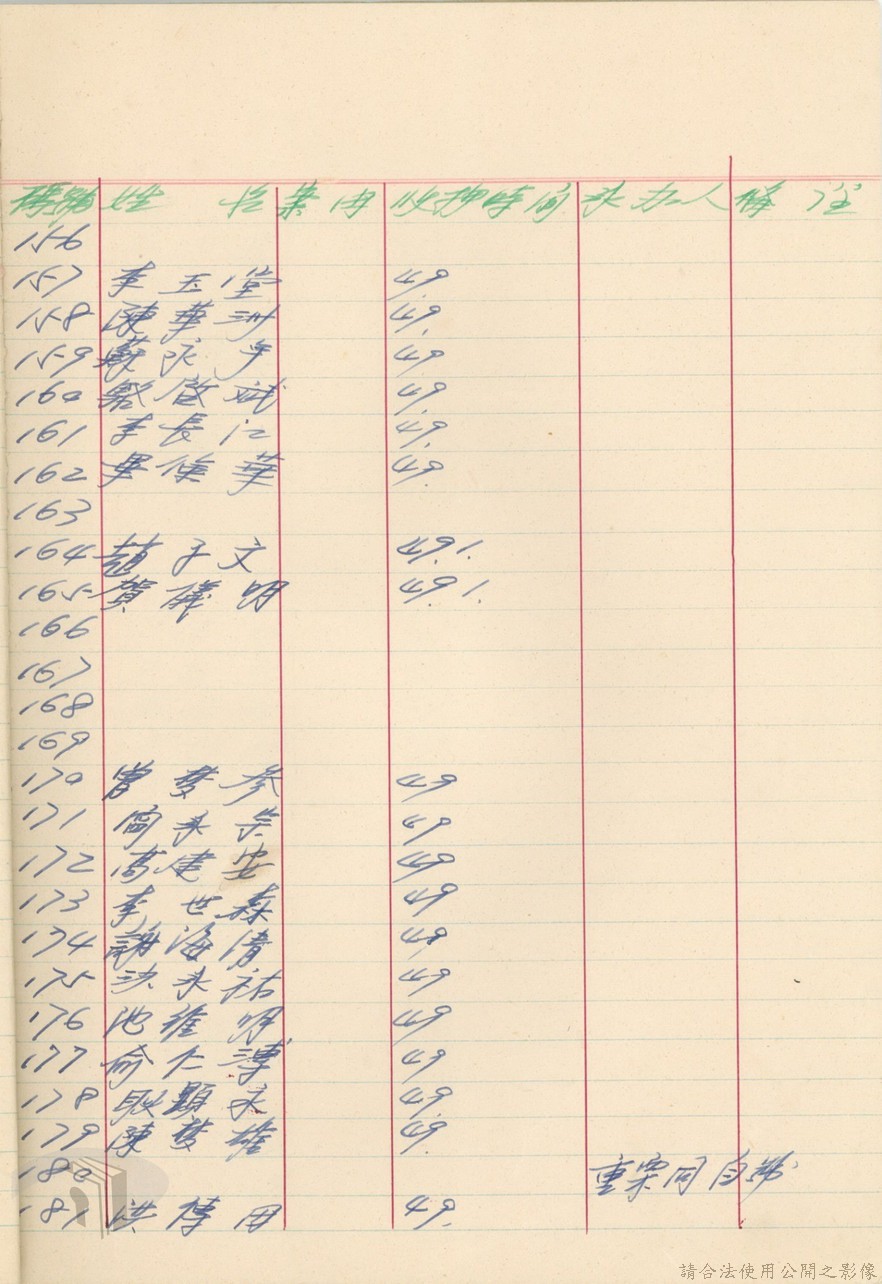 號碼 姓 名 案 由 收押時間 承办人 備 註
156
157 李玉堂 49.
158 陳華洲 49.
159 蘇永 49
160 駱啟斌 49.
161 李長江 49.
162 畢俊華 49.
163
164 趙子文 49.1.
165 賀儀明 49.1.
166
167
168
169
170 曾 49
171 永 49
172 高建安 49
173 李世森 49
174 謝海清 49
175 洪永祐 49
176 池維明 49
177 俞仁溥 49
178 耿顯 49.
179 陳雙雄 49.
180 重案同
181 洪 49.
請合法使用公開之影像